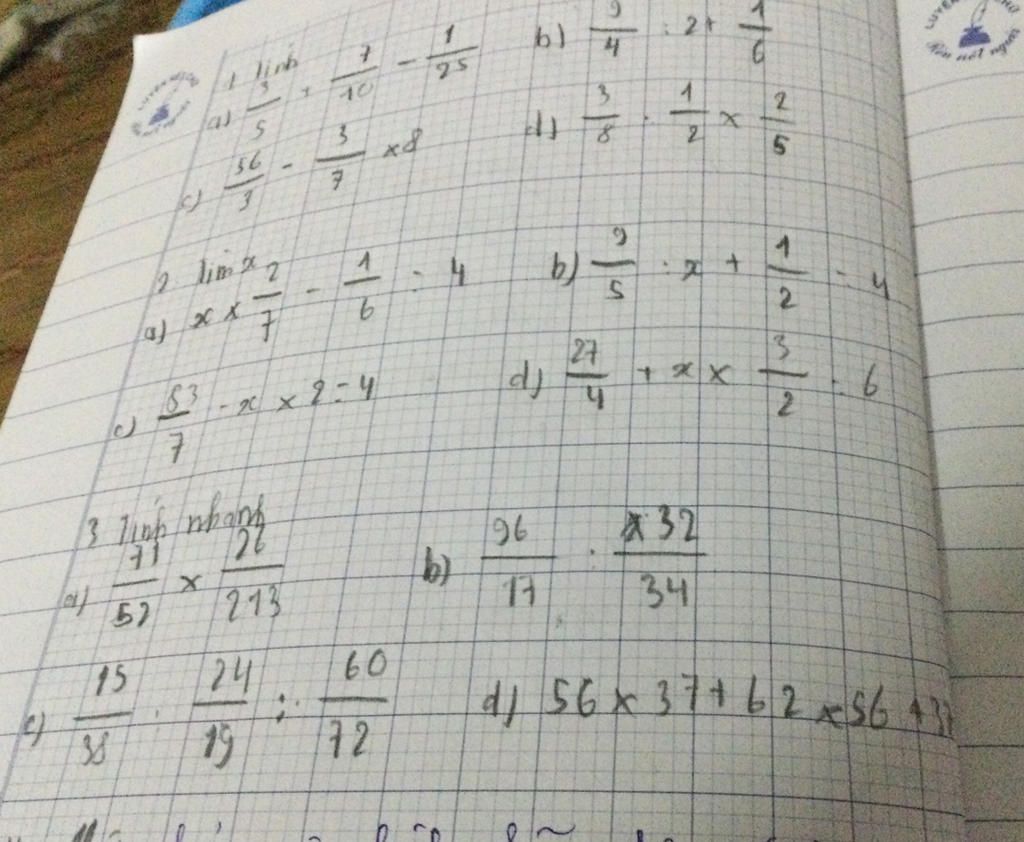 1 Tính
a) 3/5 + 7/10 - 1/25 b) 9/4 : 2 + 1/6
c) 56/3 - 3/7 x 8 d) 3/8 : 1/2 x 2/5
2 Tìm x
a) x x 2/7 - 1/6 = 4 b) 9/5 : x + 1/2 = 4
c) 53/7 - x x 2 = 4 d) 27/4 + x x 3/2 = 6
3 Tính nhanh
a) 71/52 x 26/213 b) 96/17 : 32/34
c) 15/38 : 24/19 : 60/72 d) 56 x 37 + 62 x 56 + 37